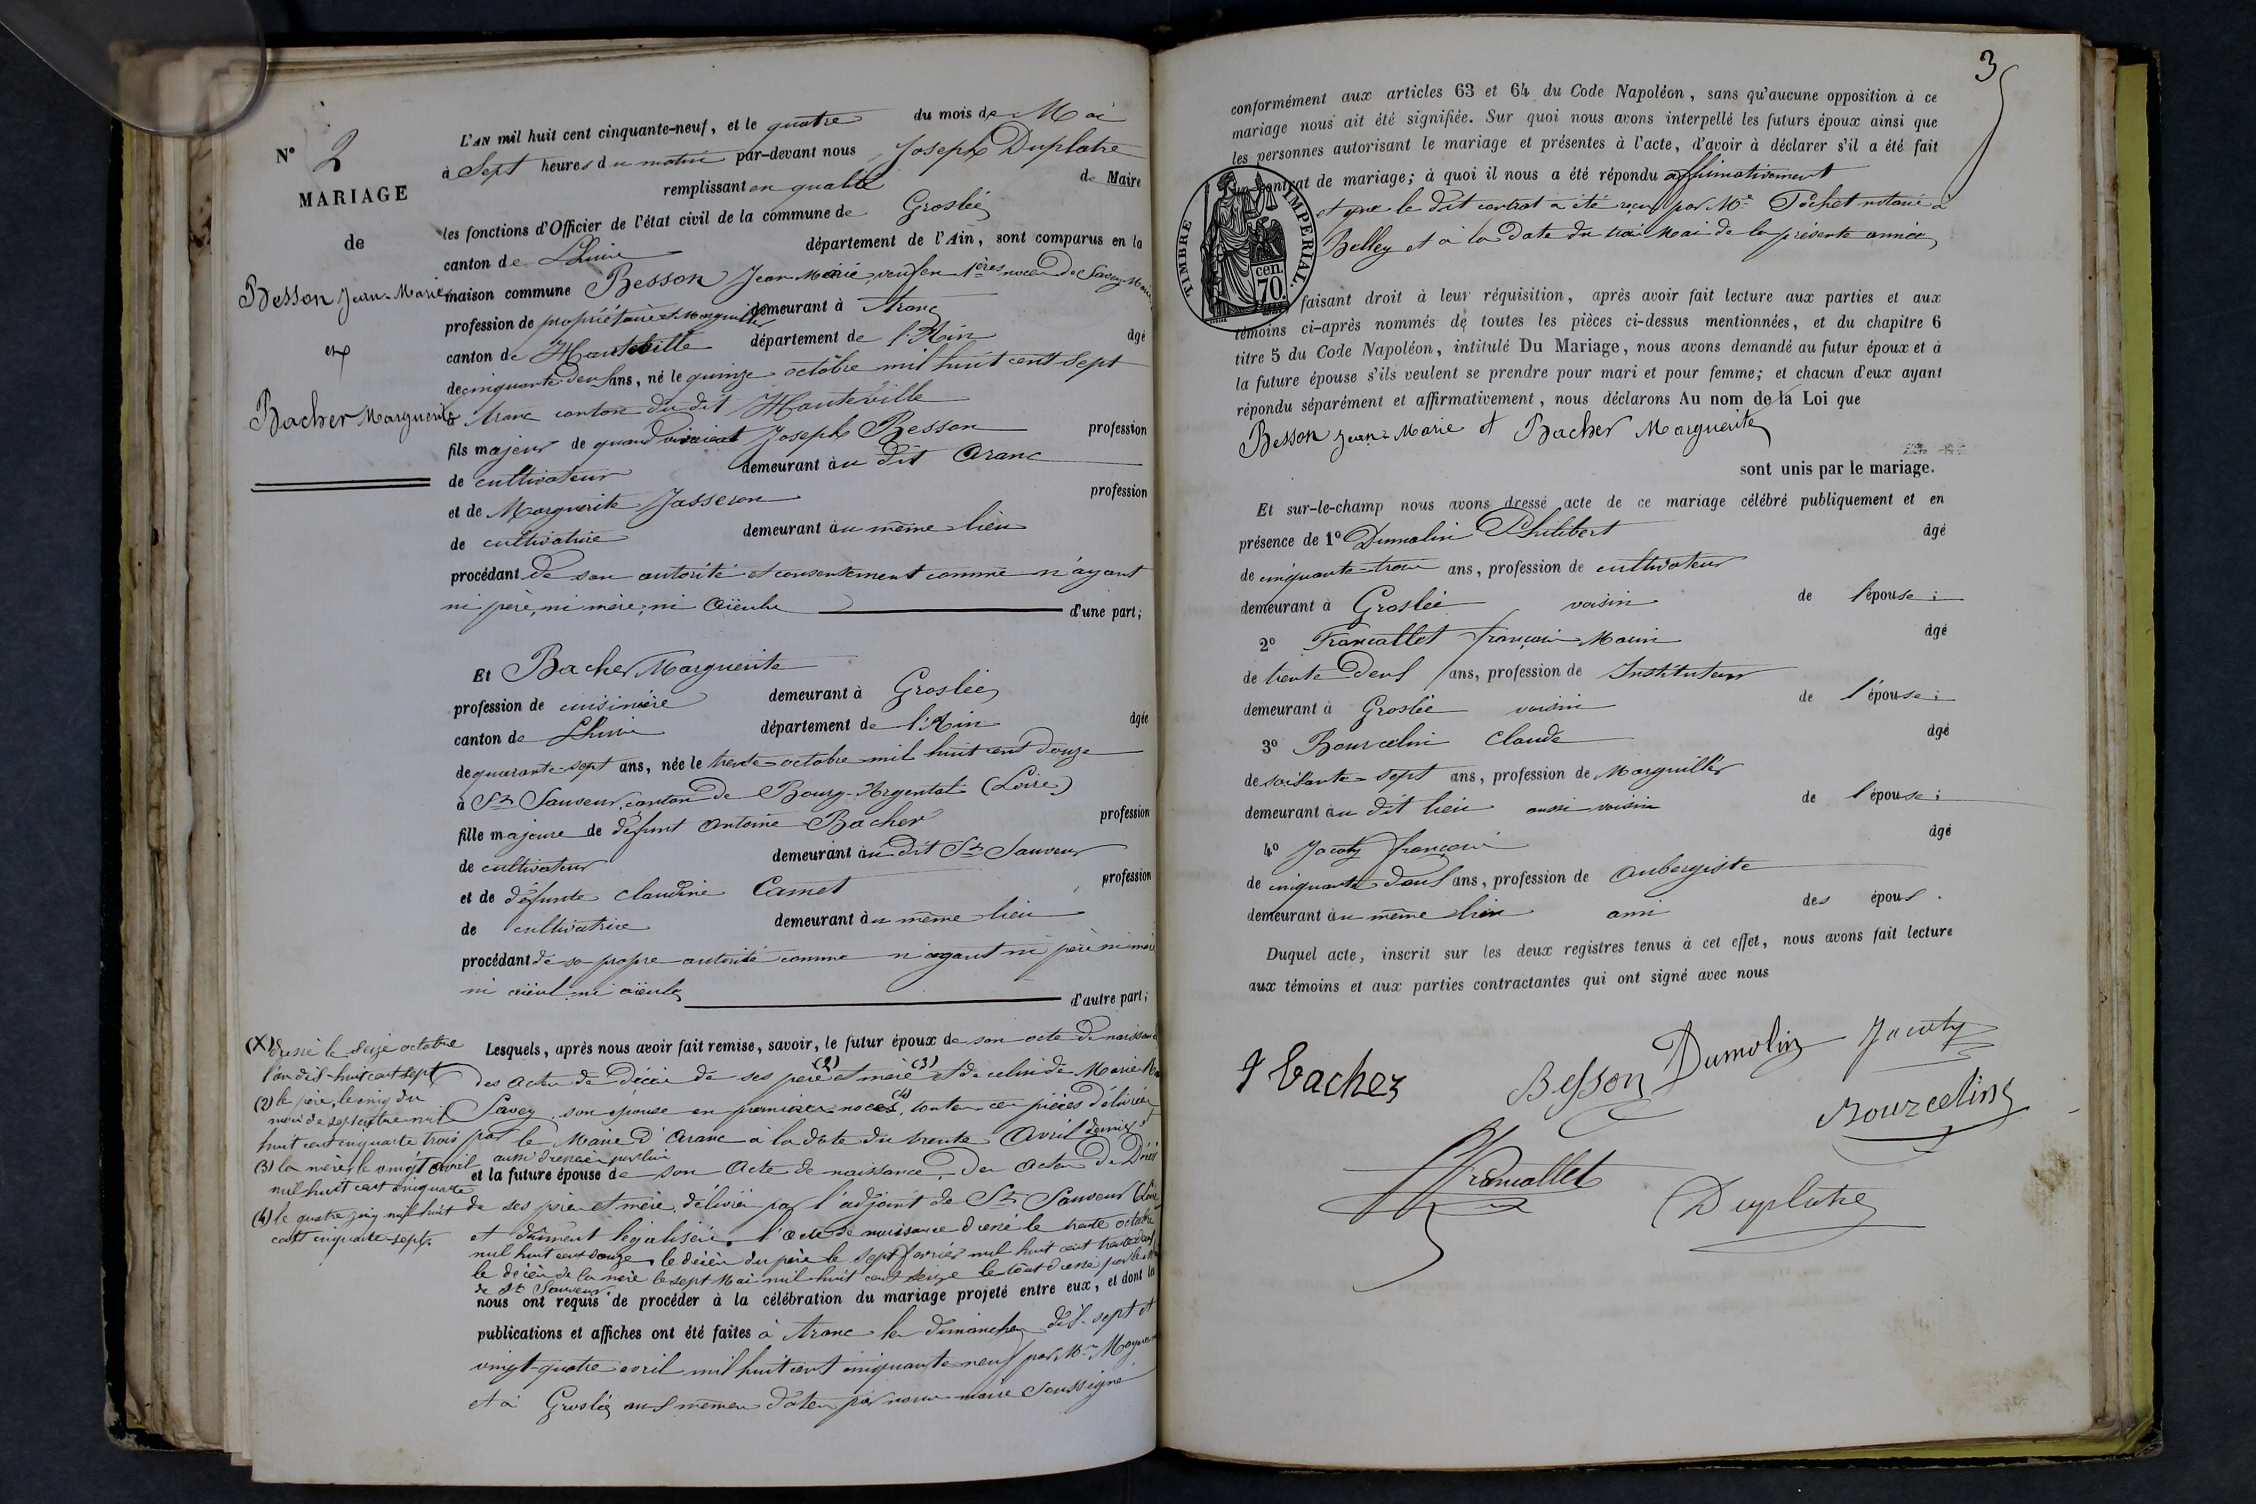 N° 2
MARIAGE
de
Besson Jean-Marie
et
Bacher Marguerite
L'AN mil huit cent cinquante-neuf, et le quatre du mois de Mai
à Sept heures du matin par-devant nous Joseph Duplatre
remplissant en qualité de Maire
les fonctions d'Officier de l'état civil de la commune de Groslée
canton de Lhuis département de l'Ain, sont comparus en la
maison commune Besson Jean-Marie, veuf en 1ères noces de Savey Marie
profession de propriétaire et Marguillier demeurant à Aranc
canton de Hauteville département de l'Ain âgé
de cinquante-deux ans, né le quinze octobre mil huit cent sept
à Aranc canton du dit Hauteville
fils majeur de quand vivaient Joseph Besson profession
de cultivateur demeurant au dit Aranc
et de Marguerite Jasseron profession
de cultivatrice demeurant au même lieu
procédant de son autorité et consentement comme n'ayant
ni père, ni mère, ni aïeuls d'une part;
Et Bacher Marguerite
profession de cuisinière demeurant à Groslée
canton de Lhuis département de l'Ain âgée
de quarante-sept ans, née le trente octobre mil huit cent douze
à St Sauveur, canton de Bourg-Argental (Loire)
fille majeure de défunt Antoine Bacher profession
de cultivateur demeurant au dit St Sauveur
et de défunte Claudine Camet profession
de cultivatrice demeurant au même lieu
procédant de sa propre autorité comme n'ayant ni père ni mère
ni aïeul, ni aïeule d'autre part;
Lesquels, après nous avoir fait remise, savoir, le futur époux de son acte de naissance
des actes de décès de ses père (2) et mère (3) et de celui de Marie
Savey son épouse en premières noces (4), toutes ces pièces délivrées
par le Maire d'Aranc à la date du trente Avril dernier
aussi dressé par lui
et la future épouse de son Acte de naissance, des actes de Décès
de ses père et mère, délivrés par l'adjoint de St Sauveur (Loire
et dûment légalisés. l'acte de naissance dressé le trente octobre
mil huit cent douze, le décès du père le sept février mil huit cent trente deux
le décès de la mère le sept Mai mil huit cent seize le tout dressé par le
de St Sauveur.
nous ont requis de procéder à la célébration du mariage projeté entre eux, et dont la
publications et affiches ont été faites à Aranc les dimanches dix-sept et
vingt-quatre avril mil huit cent cinquante-neuf par Mr
et à Groslée aux mêmes dates par nous maire Soussigné
(X) dressé le seize octobre
l'an dix-huit cent sept
(2) le père, le cinq du
mois de septembre mil
huit cent cinquante trois
(3) la mère, le vingt avril
mil huit cent cinquante
(4) le quatre juin mil huit
cent cinquante-sept.
3
conformément aux articles 63 et 64 du Code Napoléon, sans qu'aucune opposition à ce
mariage nous ait été signifiée. Sur quoi nous avons interpellé les futurs époux ainsi que
les personnes autorisant le mariage et présentes à l'acte, d'avoir à déclarer s'il a été fait
un contrat de mariage; à quoi il nous a été répondu affirmativement
et que le dit contrat a été reçu par Me Pochet notaire à
Belley et à la date du trois Mai de la présente année
TIMBRE IMPERIAL.
70 cen
faisant droit à leur réquisition, après avoir fait lecture aux parties et aux
témoins ci-après nommés de toutes les pièces ci-dessus mentionnées, et du chapitre 6
titre 5 du Code Napoléon, intitulé Du Mariage, nous avons demandé au futur époux et à
la future épouse s'ils veulent se prendre pour mari et pour femme; et chacun d'eux ayant
répondu séparément et affirmativement, nous déclarons Au nom de la Loi que
Besson Jean-Marie et Bacher Marguerite
sont unis par le mariage.
Et sur-le-champ nous avons dressé acte de ce mariage célébré publiquement et en
présence de 1° Dumolin Philibert âgé
de cinquante-trois ans, profession de cultivateur
demeurant à Groslée voisin de l'épouse;
2° Francallet françois Marin âgé
de trente deux ans, profession de Instituteur
demeurant à Groslée voisin de l'épouse;
3° Bourcelin Claude âgé
de soixante-sept ans, profession de Marguillier
demeurant au dit lieu aussi voisin de l'épouse;
4° Jacoty françois âgé
de cinquante deux ans, profession de Aubergiste
demeurant au même lieu ami des époux.
Duquel acte, inscrit sur les deux registres tenus à cet effet, nous avons fait lecture
aux témoins et aux parties contractantes qui ont signé avec nous
Bacher
Besson
Dumolin
Jacoty
Bourcelin
Francallet
Duplatre